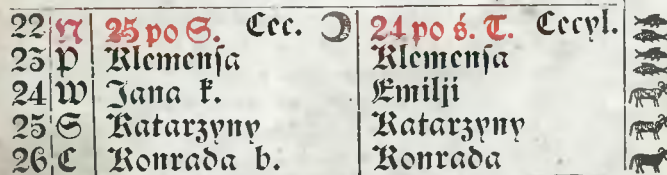 22 N 25 po S. Cec. 24 po ś. T. Cecyl.
23 P Klemenſa Klemenſa
24 W Jana k. Emilji
25 S Katarzyny Katarzyny
26 C Konrada b. Konrada